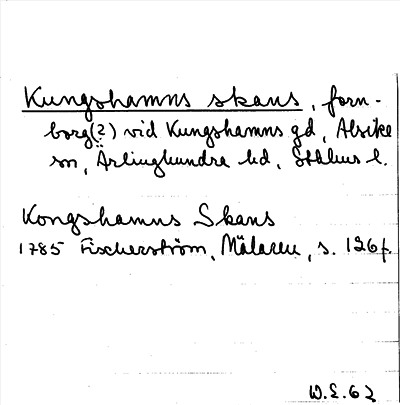 Kungshamns skans, forn-
borg(?) vid Kungshamns gd, Alsike
sn, Ärlinghundra hd, Sthlms l.
Kongshamns Skans
1785 Fischerström, Mälaren, s. 126f.
W.E. 62